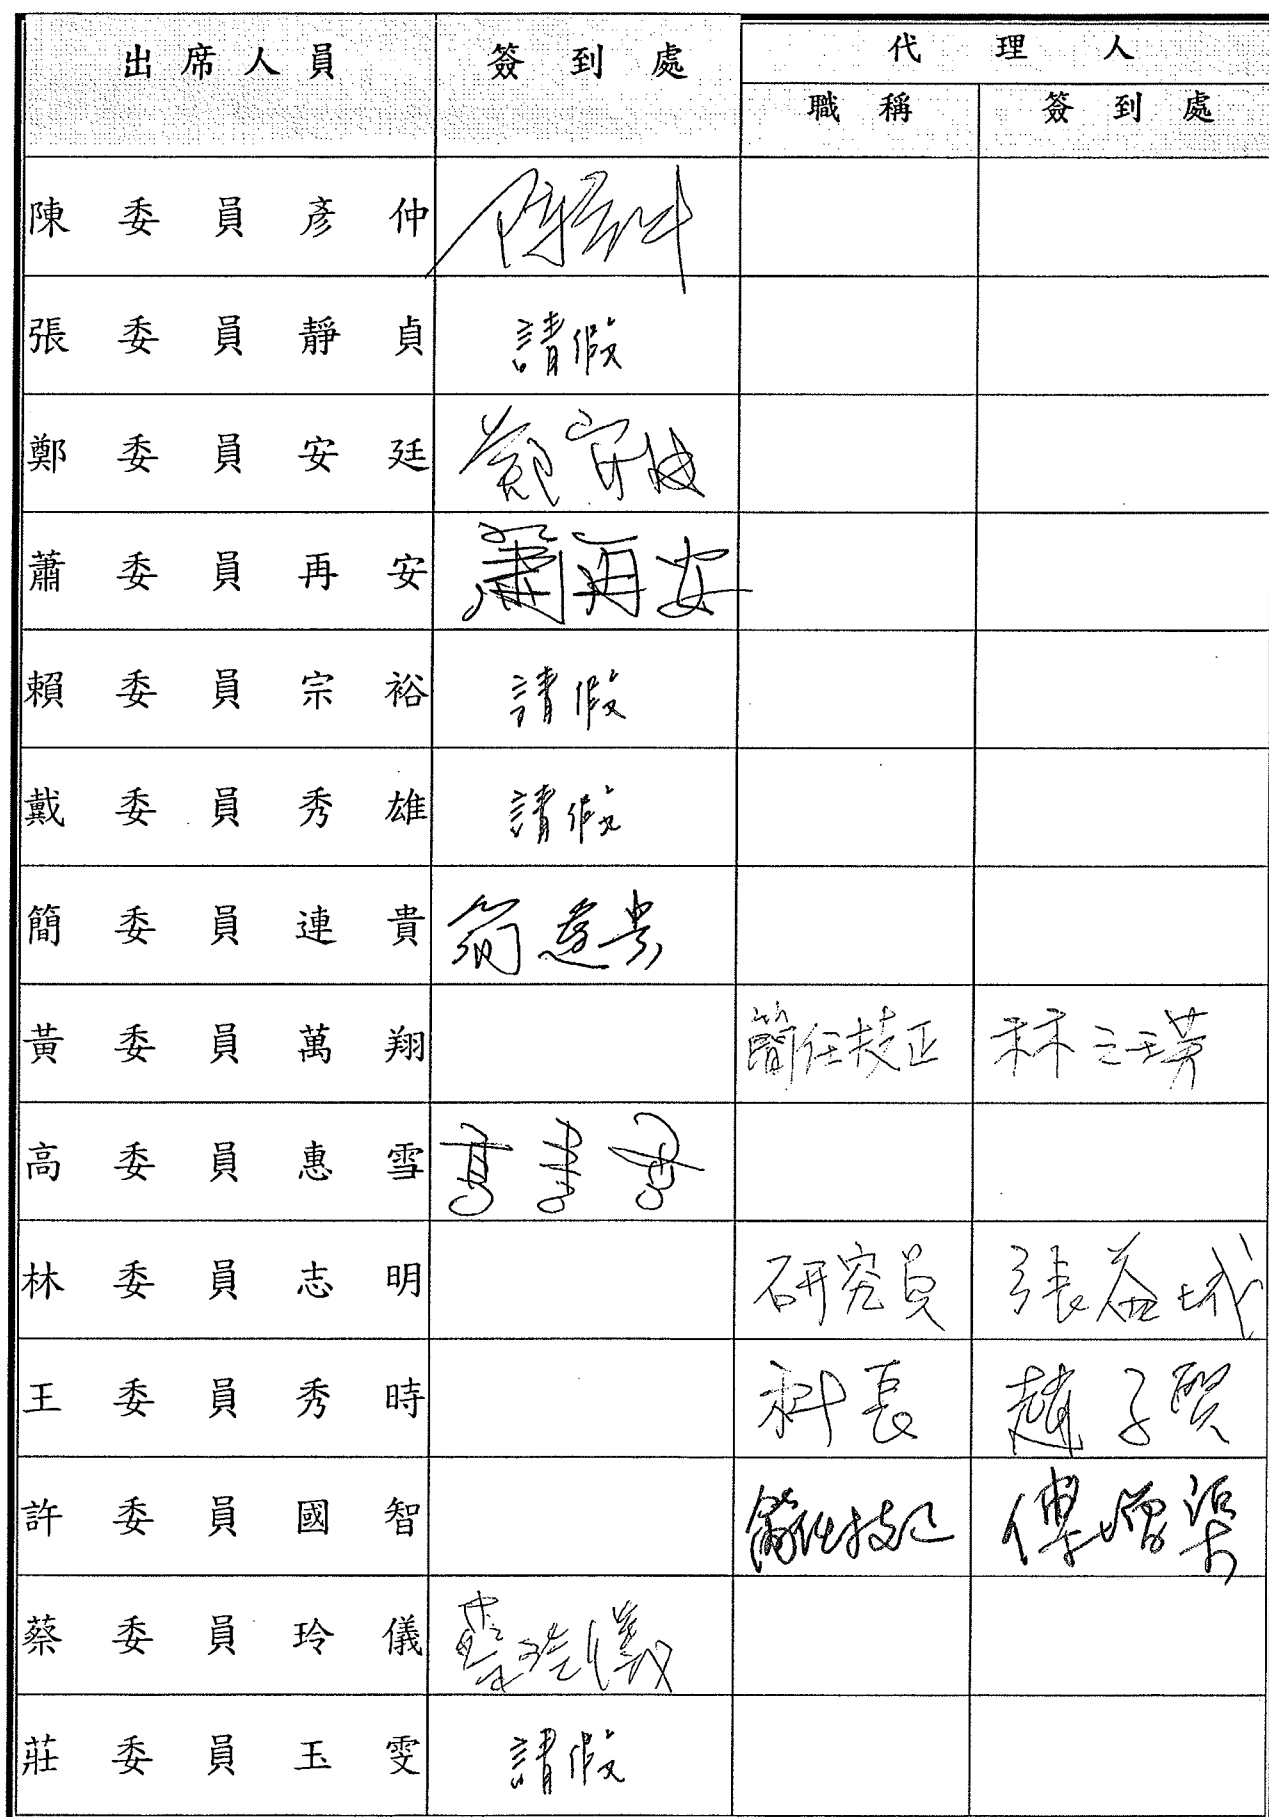 出席人員 簽到處 代理人
職稱 簽到處
陳委員彥仲 陳彥仲
張委員靜貞 請假
鄭委員安廷 鄭安廷
蕭委員再安 蕭再安
賴委員宗裕 請假
戴委員秀雄 請假
簡委員連貴 簡連貴
黃委員萬翔 簡任技正
高委員惠雪 高惠雪
林委員志明 研究員 張益城
王委員秀時 科長 趙子賢
許委員國智 簡任技正 傅增渠
蔡委員玲儀 蔡玲儀
莊委員玉雯 請假